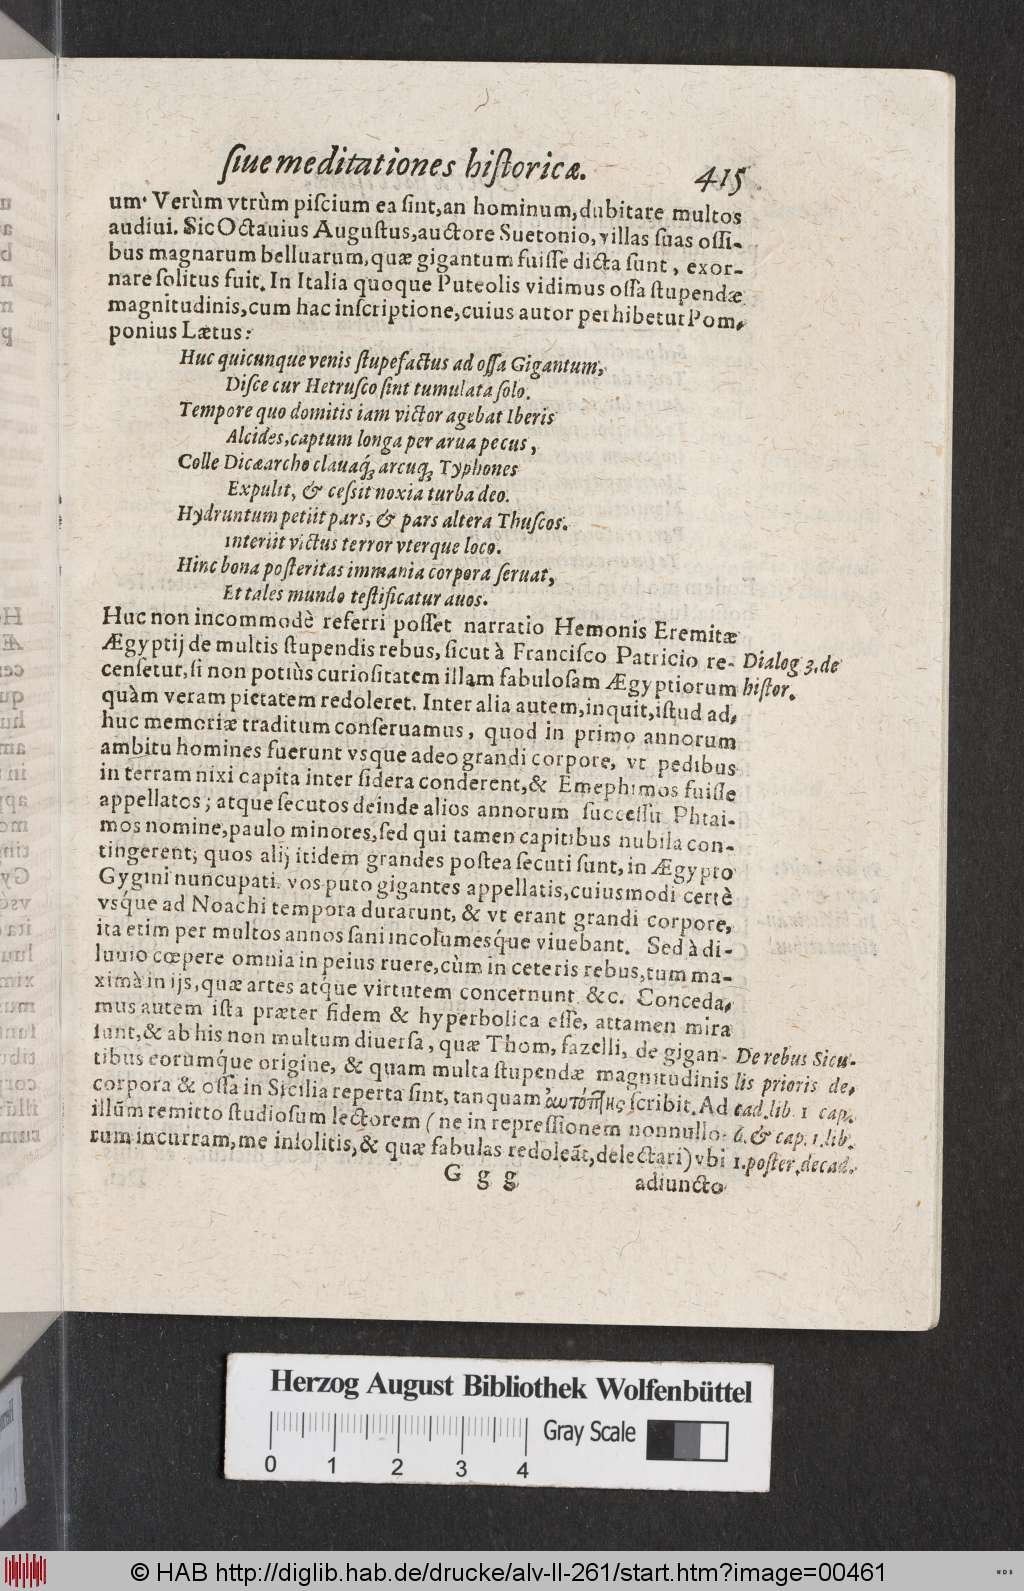 ſiue meditationes hiſtoricæ. 415
um. Verùm vtrùm piſcium ea ſint, an hominum, dubitare multos
audiui. Sic Octauius Auguſtus, auctore Suetonio, villas ſuas oſſi-
bus magnarum belluarum, quæ gigantum fuiſſe dicta ſunt, exor-
nare ſolitus fuit. In Italia quoque Puteolis vidimus oſſa ſtupendæ
magnitudinis, cum hac inſcriptione, cuius autor perhibetur Pom-
ponius Lætus:
Huc quicunque venis ſtupefactus ad oſſa Gigantum,
Diſce cur Hetruſco ſint tumulata ſolo.
Tempore quo domitis iam victor agebat Iberis
Alcides, captum longa per arua pecus,
Colle Dicæarcho clauaq́ꝫ arcuq́ꝫ Typhones
Expulit, & ceſsit noxia turba deo.
Hydruntum petiit pars, & pars altera Thuſcos.
interiit victus terror vterque loco.
Hinc bona poſteritas immania corpora ſeruat,
Et tales mundo teſtificatur auos.
Huc non incommodè referri poſſet narratio Hemonis Eremitæ
Ægyptij de multis ſtupendis rebus, ſicut à Franciſco Patricio re-
cenſetur, ſi non potiùs curioſitatem illam fabuloſam Ægyptiorum
quàm veram pietatem redoleret. Inter alia autem, inquit, iſtud ad-
huc memoriæ traditum conſeruamus, quod in primo annorum
ambitu homines fuerunt vsque adeo grandi corpore, vt pedibus
in terram nixi capita inter ſidera conderent, & Emephimos fuiſſe
appellatos; atque ſecutos deinde alios annorum ſucceſſu Phtai-
mos nomine, paulo minores, ſed qui tamen capitibus nubila con-
tingerent; quos alij itidem grandes poſtea ſecuti ſunt, in Ægypto
Gygini nuncupati. vos puto gigantes appellatis, cuiusmodi certè
vsque ad Noachi tempora durarunt, & vt erant grandi corpore,
ita etim per multos annos ſani incolumesq́ue viuebant. Sed à di-
luuio cœpere omnia in peius ruere, cùm in ceteris rebus, tum ma-
ximà in ijs, quæ artes atq́ue virtutem concernunt &c. Conceda-
mus autem iſta præter fidem & hyperbolica eſſe, attamen mira
ſunt, & ab his non multum diuerſa, quæ Thom, fazelli, de gigan-
tibus eorumq́ue origine, & quam multa ſtupendæ magnitudinis
corpora & oſſa in Sicilia reperta ſint, tanquam ſcribit. Ad
illũm remitto ſtudioſum lectorem (ne in repreſſionem nonnullo-
rum incurram, me inſolitis, & quæ fabulas redoleãt, delectari) vbi
G g g adiuncto
Dialog 3. de
hiſtor.
De rebus Sicu-
lis prioris de-
cad. lib. 1 cap.
6. & cap. 1. lib.
1. poſter. decad.
Herzog August Bibliothek Wolfenbüttel
Gray Scale
0 1 2 3 4
© HAB http://diglib.hab.de/drucke/alv-ll-261/start.htm?image=00461